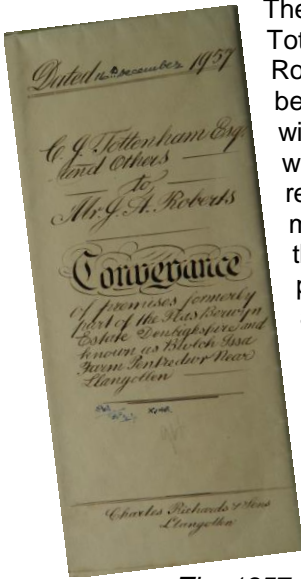 The
Tot
Ro
be
wi
w
re
m
th
p
Dated 16th December 1957
C. J. Tottenham Esq.
and Others
to
Mr. J. A. Roberts
Conveyance
of premises formerly
part of the Plas Berwyn
Estate Denbighshire and
known as Bwlch Issa
Farm Pentredwr Near
Llangollen
Charles Richards & Sons
Llangollen
The 1957